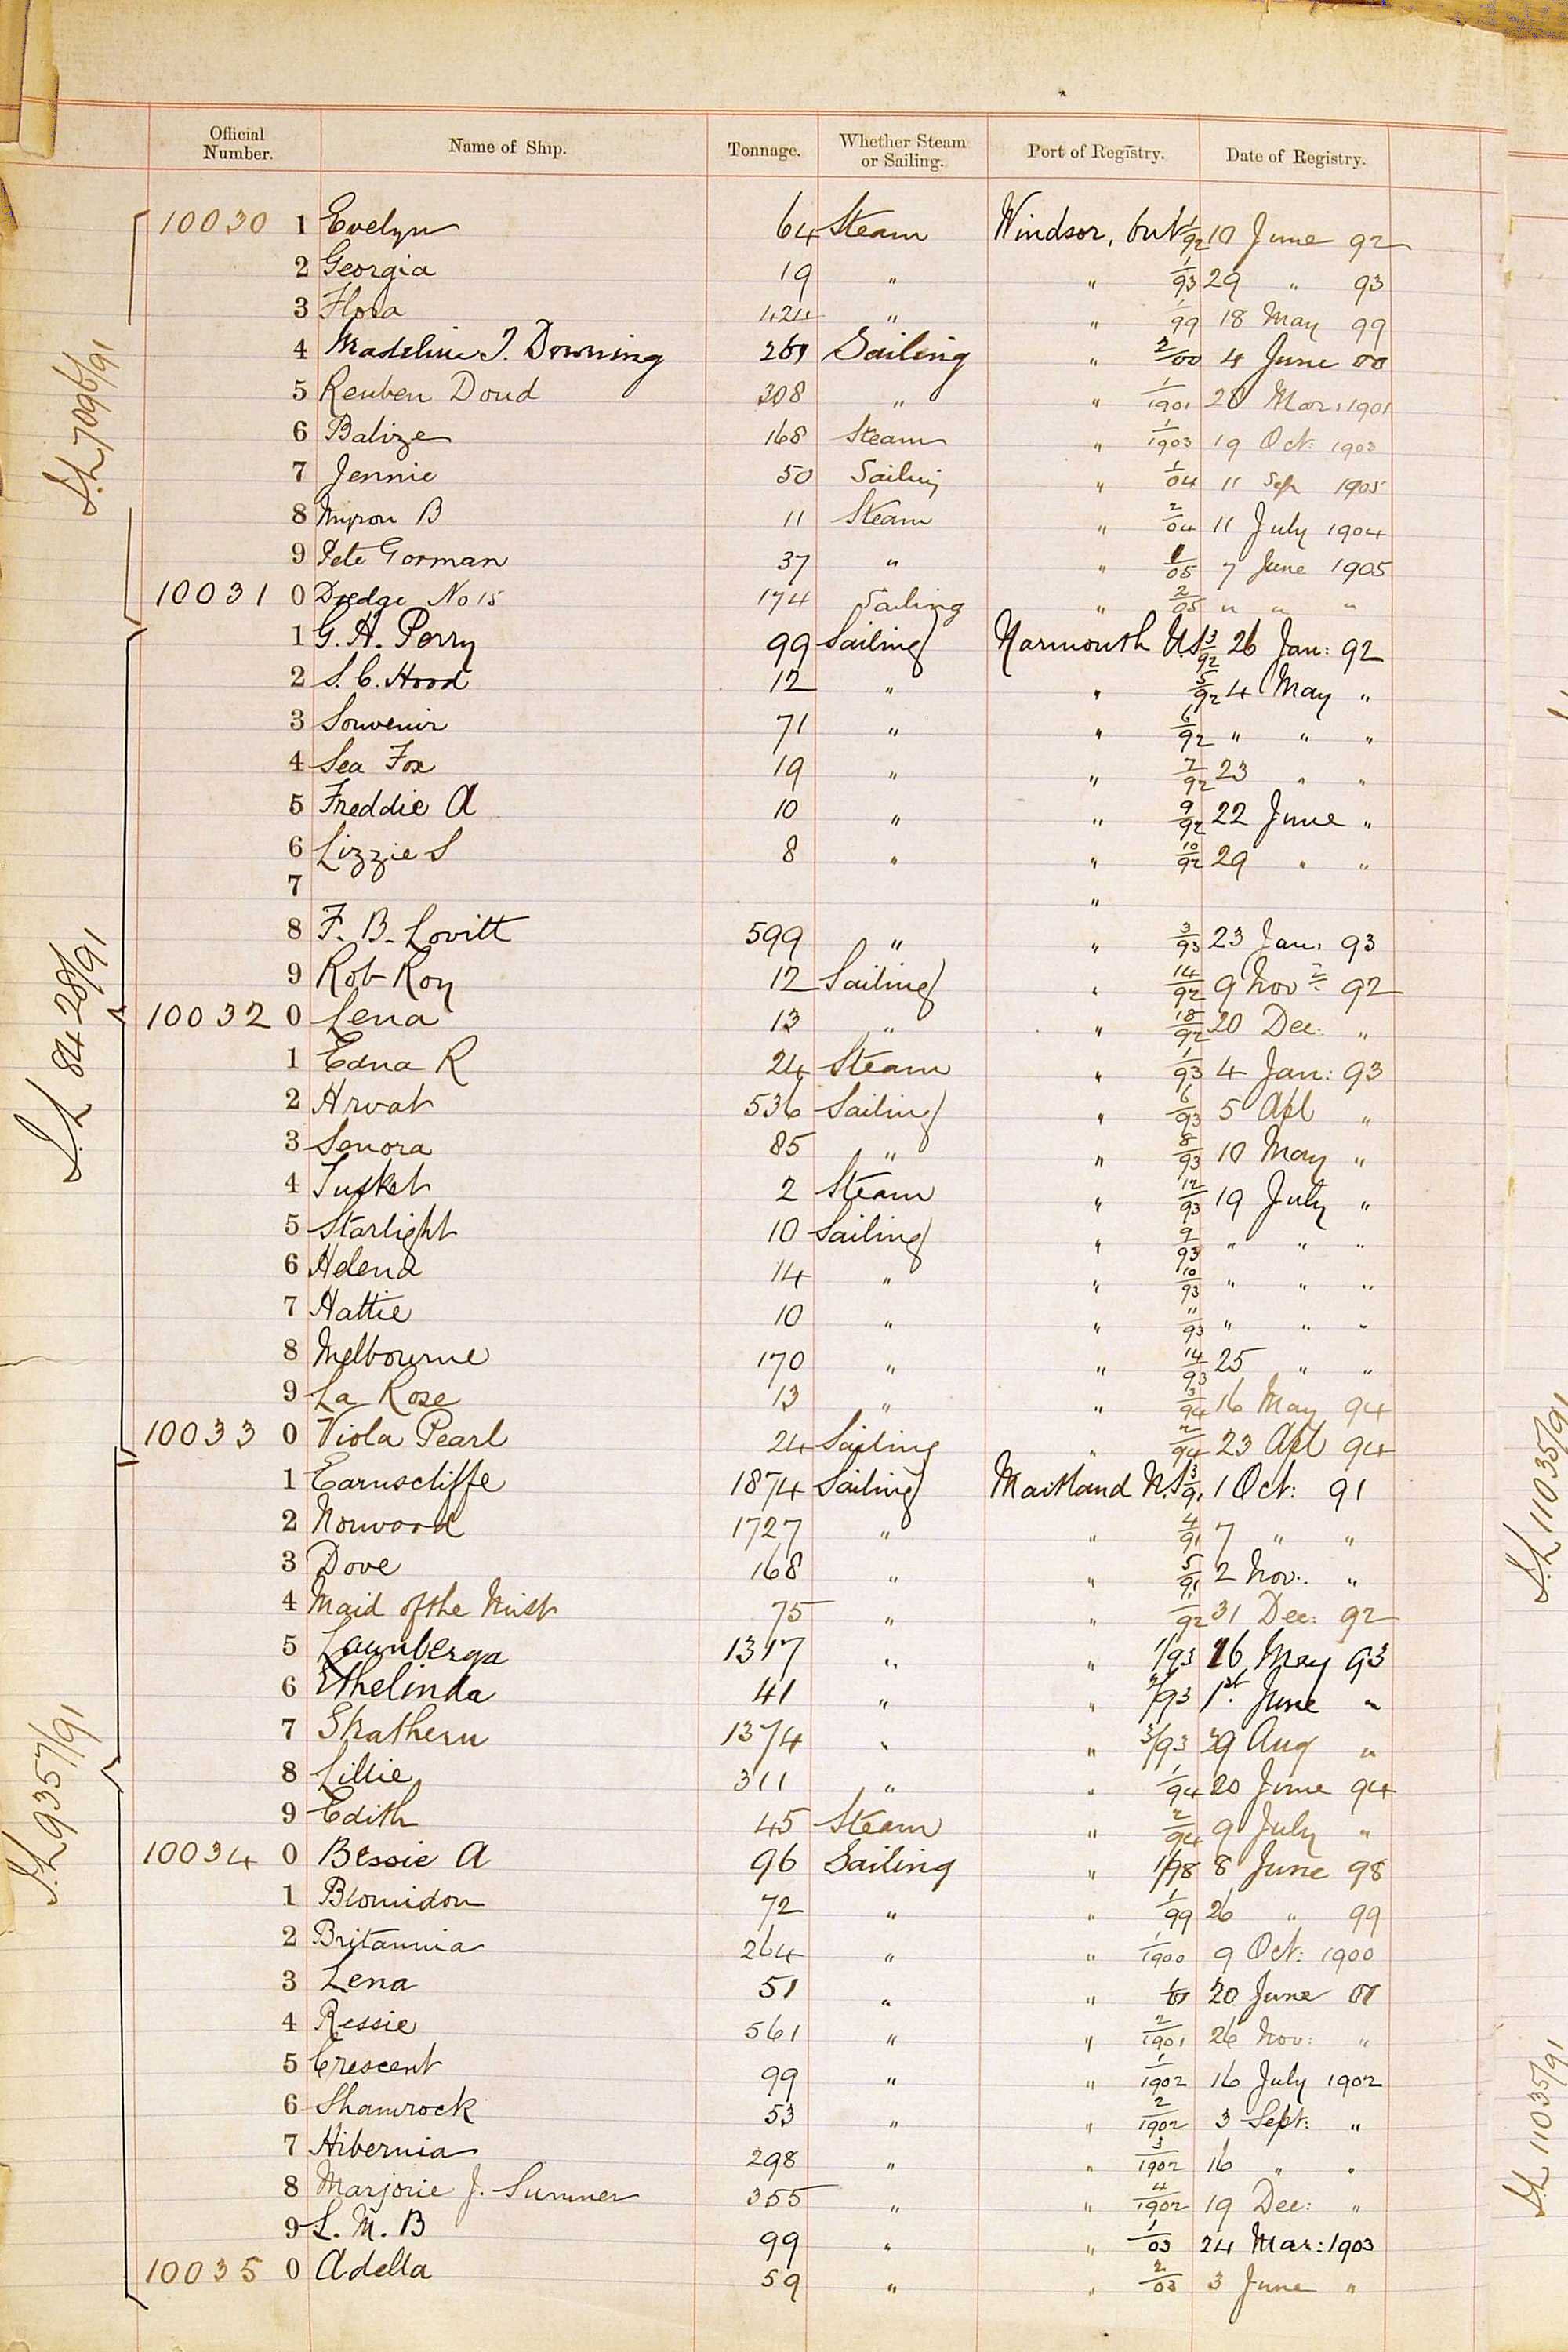 Official Number. Name of Ship. Tonnage. Whether Steam or Sailing. Port of Registry. Date of Registry.
10030 1 Evelyn 64 Steam Windsor, Ont 1/92 10 June 92
2 Georgia 19 " " 1/93 29 " 93
3 Flora 424 " " 1/99 18 May 99
4 Madeline T. Downing 261 Sailing " 2/00 4 June 00
5 Reuben Doud 308 " " 1/1901 28 Mar: 1901
6 Balize 168 Steam " 1/1903 19 Oct: 1903
7 Jennie 50 Sailing " 1/04 11 Sep 1905
8 Myron B 11 Steam " 2/04 11 July 1904
9 Pete Gorman 37 " " 1/05 7 June 1905
10031 0 Dredge No 15 174 Sailing " 2/05 " " "
1 G. H. Perry 99 Sailing Yarmouth N.S 3/92 26 Jan: 92
2 S. C. Hood 12 " " 5/92 4 May "
3 Souvenir 71 " " 6/92 " " "
4 Sea Fox 19 " " 7/92 23 " "
5 Freddie A 10 " " 9/92 22 June "
6 Lizzie S 8 " " 10/92 29 " "
7 "
8 F. B. Lovitt 599 " " 3/93 23 Jan: 93
9 Rob Roy 12 Sailing " 14/92 9 Nov 92
10032 0 Lena 13 " " 18/92 20 Dec: "
1 Edna R 24 Steam " 1/93 4 Jan: 93
2 Arvat 536 Sailing " 6/93 5 Apl "
3 Senora 85 " " 8/93 10 May "
4 Tusket 2 Steam " 12/93 19 July "
5 Starlight 10 Sailing " 9/93 " " "
6 Helena 14 " " 10/93 " " "
7 Hattie 10 " " 11/93 " " "
8 Melbourne 170 " " 14/93 25 " "
9 La Rose 13 " " 3/94 16 May 94
10033 0 Viola Pearl 24 Sailing " 2/94 23 Apl 94
1 Earnscliffe 1874 Sailing Maitland N.S 3/91 1 Oct: 91
2 Norwood 1727 " " 4/91 7 " "
3 Dove 168 " " 5/91 2 Nov: "
4 Maid of the Mist 75 " " 1/92 31 Dec: 92
5 Launberga 1317 " " 1/93 16 May 93
6 Ethelinda 41 " " 2/93 1st June "
7 Strathern 1374 " " 3/93 29 Aug "
8 Lillie 311 " " 1/94 20 June 94
9 Edith 45 Steam " 2/94 9 July "
10034 0 Bessie A 96 Sailing " 1/98 8 June 98
1 Blomidon 72 " " 1/99 26 " 99
2 Britannia 264 " " 1/1900 9 Oct: 1900
3 Lena 51 " " 1/01 20 June 01
4 Ressie 561 " " 2/1901 26 Nov: "
5 Crescent 99 " " 1/1902 16 July 1902
6 Shamrock 53 " " 2/1902 3 Sept: "
7 Hibernia 298 " " 3/1902 16 " "
8 Marjorie J. Sumner 355 " " 4/1902 19 Dec: "
9 L. M. B 99 " " 1/03 24 Mar: 1903
10035 0 Adella 59 " " 2/03 3 June "
S.L 7096/91
S.L 8428/91
S.L 9357/91
S.L 11035/91
S.L 11035/91